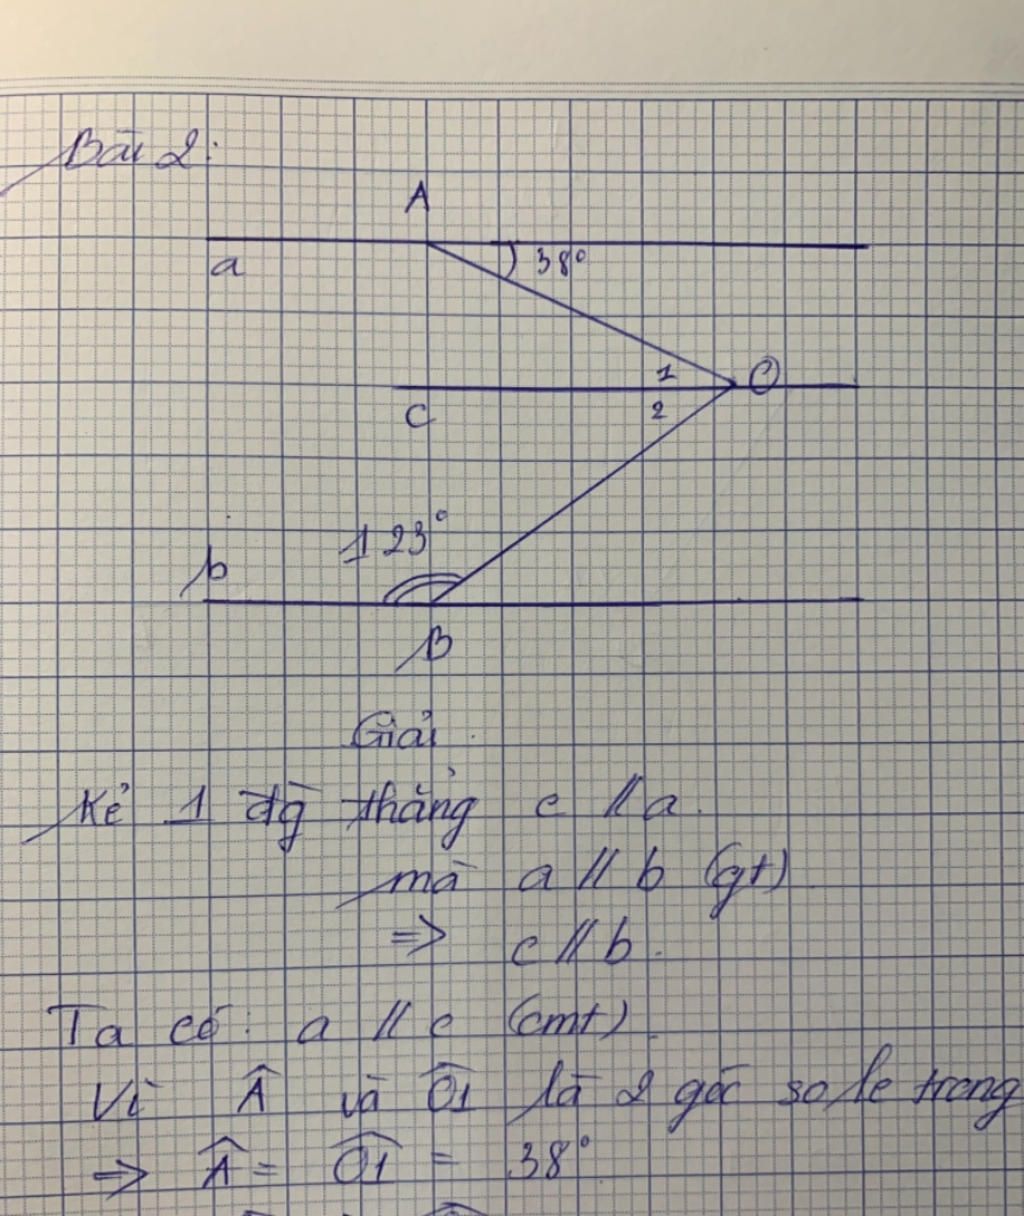 Bài 2:
A
a
38°
1
O
c
2
123°
b
B
Giải
Kẻ 1 đg̀ thẳng c // a.
mà a // b (gt)
=> c // b.
Ta có: a // c (cmt).
Vì Â và Ô1 là 2 góc so le trong
=> Â = Ô1 = 38°